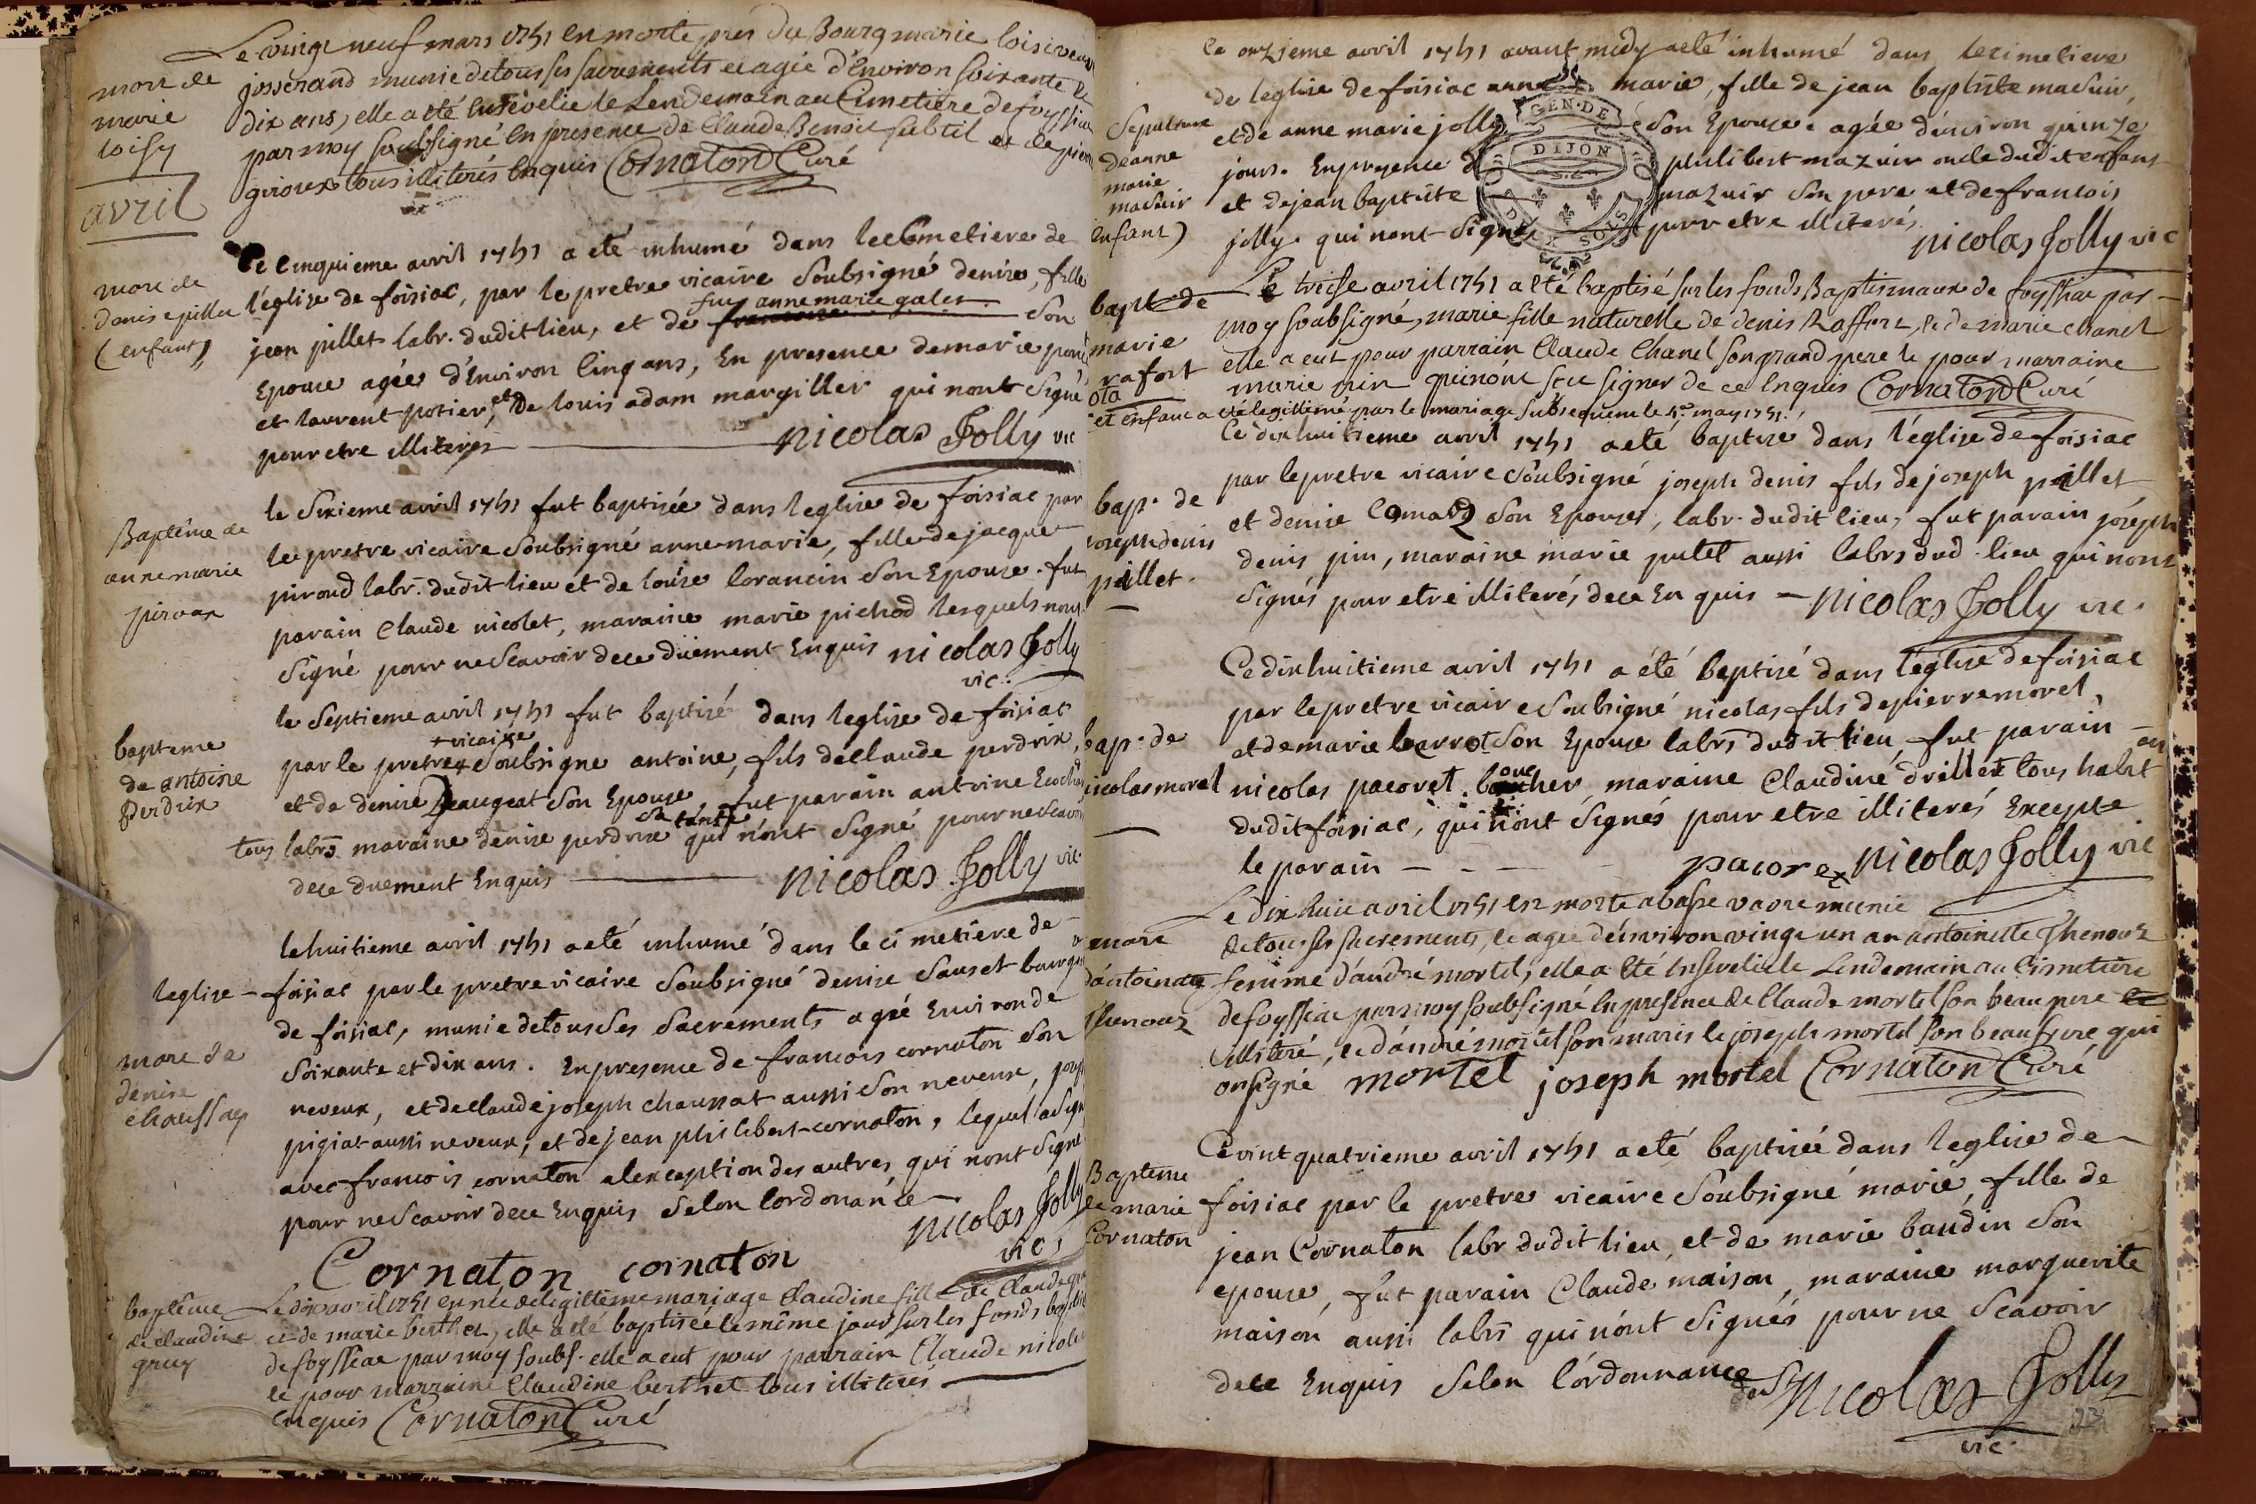 Le vingt neuf mars 1751 en morte pres du Bourg marie loisi veuve
josserand munie de tous ses sacrements et agée d'Environ soixante et
dix ans, elle a eté ensevelie le Lendemain au Cimetiere de foyssiac
par moy soubsigné En presence de Claude Benoit subtil et de pierre
giroux tous illiterés Enquis Cornaton Curé
mort de
marie
loisy
avril
Le Cinquieme avril 1751 a eté inhumé dans le Cimetiere de
l'eglise de foisiac, par le pretre vicaire Soubsigné denise, fille
jean pillet labr. dudit lieu, et de feue anne marie galet Son
Epouse agée d'Environ Cinq ans, En presence de marie
et laurent potier, et de louis adam margiller qui n'ont Signé
pour etre illiterés nicolas Jolly vic
mort de
denise pillet
(enfant)
le Sixieme avril 1751 fut baptisée dans leglise de foisiac par
le pretre vicaire Soubsigné anne marie, fille de jacque
piroud labr. dudit lieu et de louise lorancin Son Epouse. fut
parain Claude nicolet, maraine marie pichod lesquels n'ont
Signé pour ne Scavoir de ce duement Enquis nicolas Jolly
vic.
Baptême de
anne marie
piroux
le Septieme avril 1751 fut baptisé dans leglise de foisiac
par le pretre + vicaire Soubsigne antoine, fils de claude perdrix,
et de denise Beaugeat Son Epouse, fut parain antoine
tous labrs maraine denise perdrix sa tante qui n'ont Signé pour ne Scavoir
de ce duement Enquis nicolas Jolly vic.
bapteme
de antoine
perdrix
le huitieme avril 1751 a eté inhumé dans le cimetiere de
leglise - foisiac par le pretre vicaire Soubsigné denise Sauset
de foisiac, munie de tous Ses Sacrements agée Environ de
Soixante et dix ans. En presence de francois cornaton Son
neveux, et de claude joseph chaussat aussi Son neveux,
pigiat aussi neveux, et de jean philibert cornaton, lequel a Signé
avec francois cornaton a lexception des autres qui n'ont Signé
pour ne Scavoir de ce Enquis Selon lordonance
nicolas Jolly
vic
Cornaton cornaton
mort de
denise
chaussat
Le dix avril 1751 est née de legitime mariage Claudine fille de Claude
et de marie berthet, elle a eté baptisée le même jour sur les fonds
de foyssiac par moy soubs. elle a eut pour parrain Claude nicolet
et pour marraine Claudine berthet tous illiterés
Enquis Cornaton Curé
baptême
de claudine
gruy
le onzieme avril 1751 avant midy a eté inhumé dans le cimetiere
de leglise de foisiac anne marie, fille de jean baptiste masuir,
et de anne marie jolly Son Epouse. agée d'environ quinze
jours. En presence de philibert mazuir oncle dudit enfant
et de jean baptiste mazuir Son pere et de francois
jolly. qui n'ont Signé pour etre illiterés
nicolas Jolly vic
GEN. DE
DIJON
DEUX SOUS
Sepulture
de anne
marie
masuir
enfant)
Le treise avril 1751 a eté baptisé sur les fonds Baptismaux de foyssiac par
moy soubsigné, marie fille naturelle de denis Raffort, et de marie chanel
elle a eut pour parrain Claude Chanel son grand pere et pour marraine
marie pin qui n'ont sceu signer de ce Enquis Cornaton Curé
bapt. de
marie
rafort
et enfant a eté legittimé par le mariage Subsequent le 4e may 1751.
Le dix huitieme avril 1751 a eté baptisé dans l'église de foisiac
par le pretre vicaire Soubsigné joseph denis fils de joseph pillet
et denise Son Epouse, labr. dudit lieu, fut parain joseph
denis pin, maraine marie putet aussi labrs dud. lieu qui n'ont
Signés pour etre illiterés de ce Enquis nicolas Jolly vic.
bap. de
joseph denis
pillet.
Ce dix huitieme avril 1751 a été baptisé dans l'église de foisiac
par le pretre vicaire Soubsigné nicolas fils de pierre morel,
et de marie Son Epouse labrs dudit lieu, fut parain
nicolas pacoret. boucher, maraine Claudine drillet tous habit
dudit foisiac, qui n'ont Signés pour etre illiterés Excepte
le parain pacoret nicolas Jolly vic
bap. de
nicolas morel
Le dix huit avril 1751 est morte a basse vavre munie
de tous ses sacrements, et agee d'environ vingt un an antoinette Thenoux
femme d'andré mortel, elle a eté Ensevelie le Lendemain au Cimetiere
de foyssiac par moy soubsigné En presence de Claude mortel son beau pere
illiteré, et d'andré mortel son maris et joseph mortel son beau frere qui
ont signé mortel joseph mortel Cornaton Curé
mort
d'antoinette
Thenoux
Ce vint quatrieme avril 1751 a eté baptisée dans l'eglise de
foisiac par le pretre vicaire Soubsigné marie, fille de
jean Cornaton labr dudit lieu, et de marie baudin Son
epouse, fut parain Claude maison, maraine marguerite
maison aussi labrs qui n'ont Signés pour ne Scavoir
de ce Enquis Selon l'ordonnance Nicolas Jolly
vic.
Bapteme
de marie
Cornaton
23